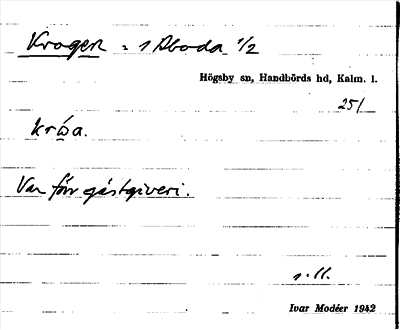 Krogen = 1 Aboda 1/2
Högsby sn, Handbörds hd, Kalm. l.
251
Var förr gästgiveri.
s. 11.
Ivar Modéer 1942